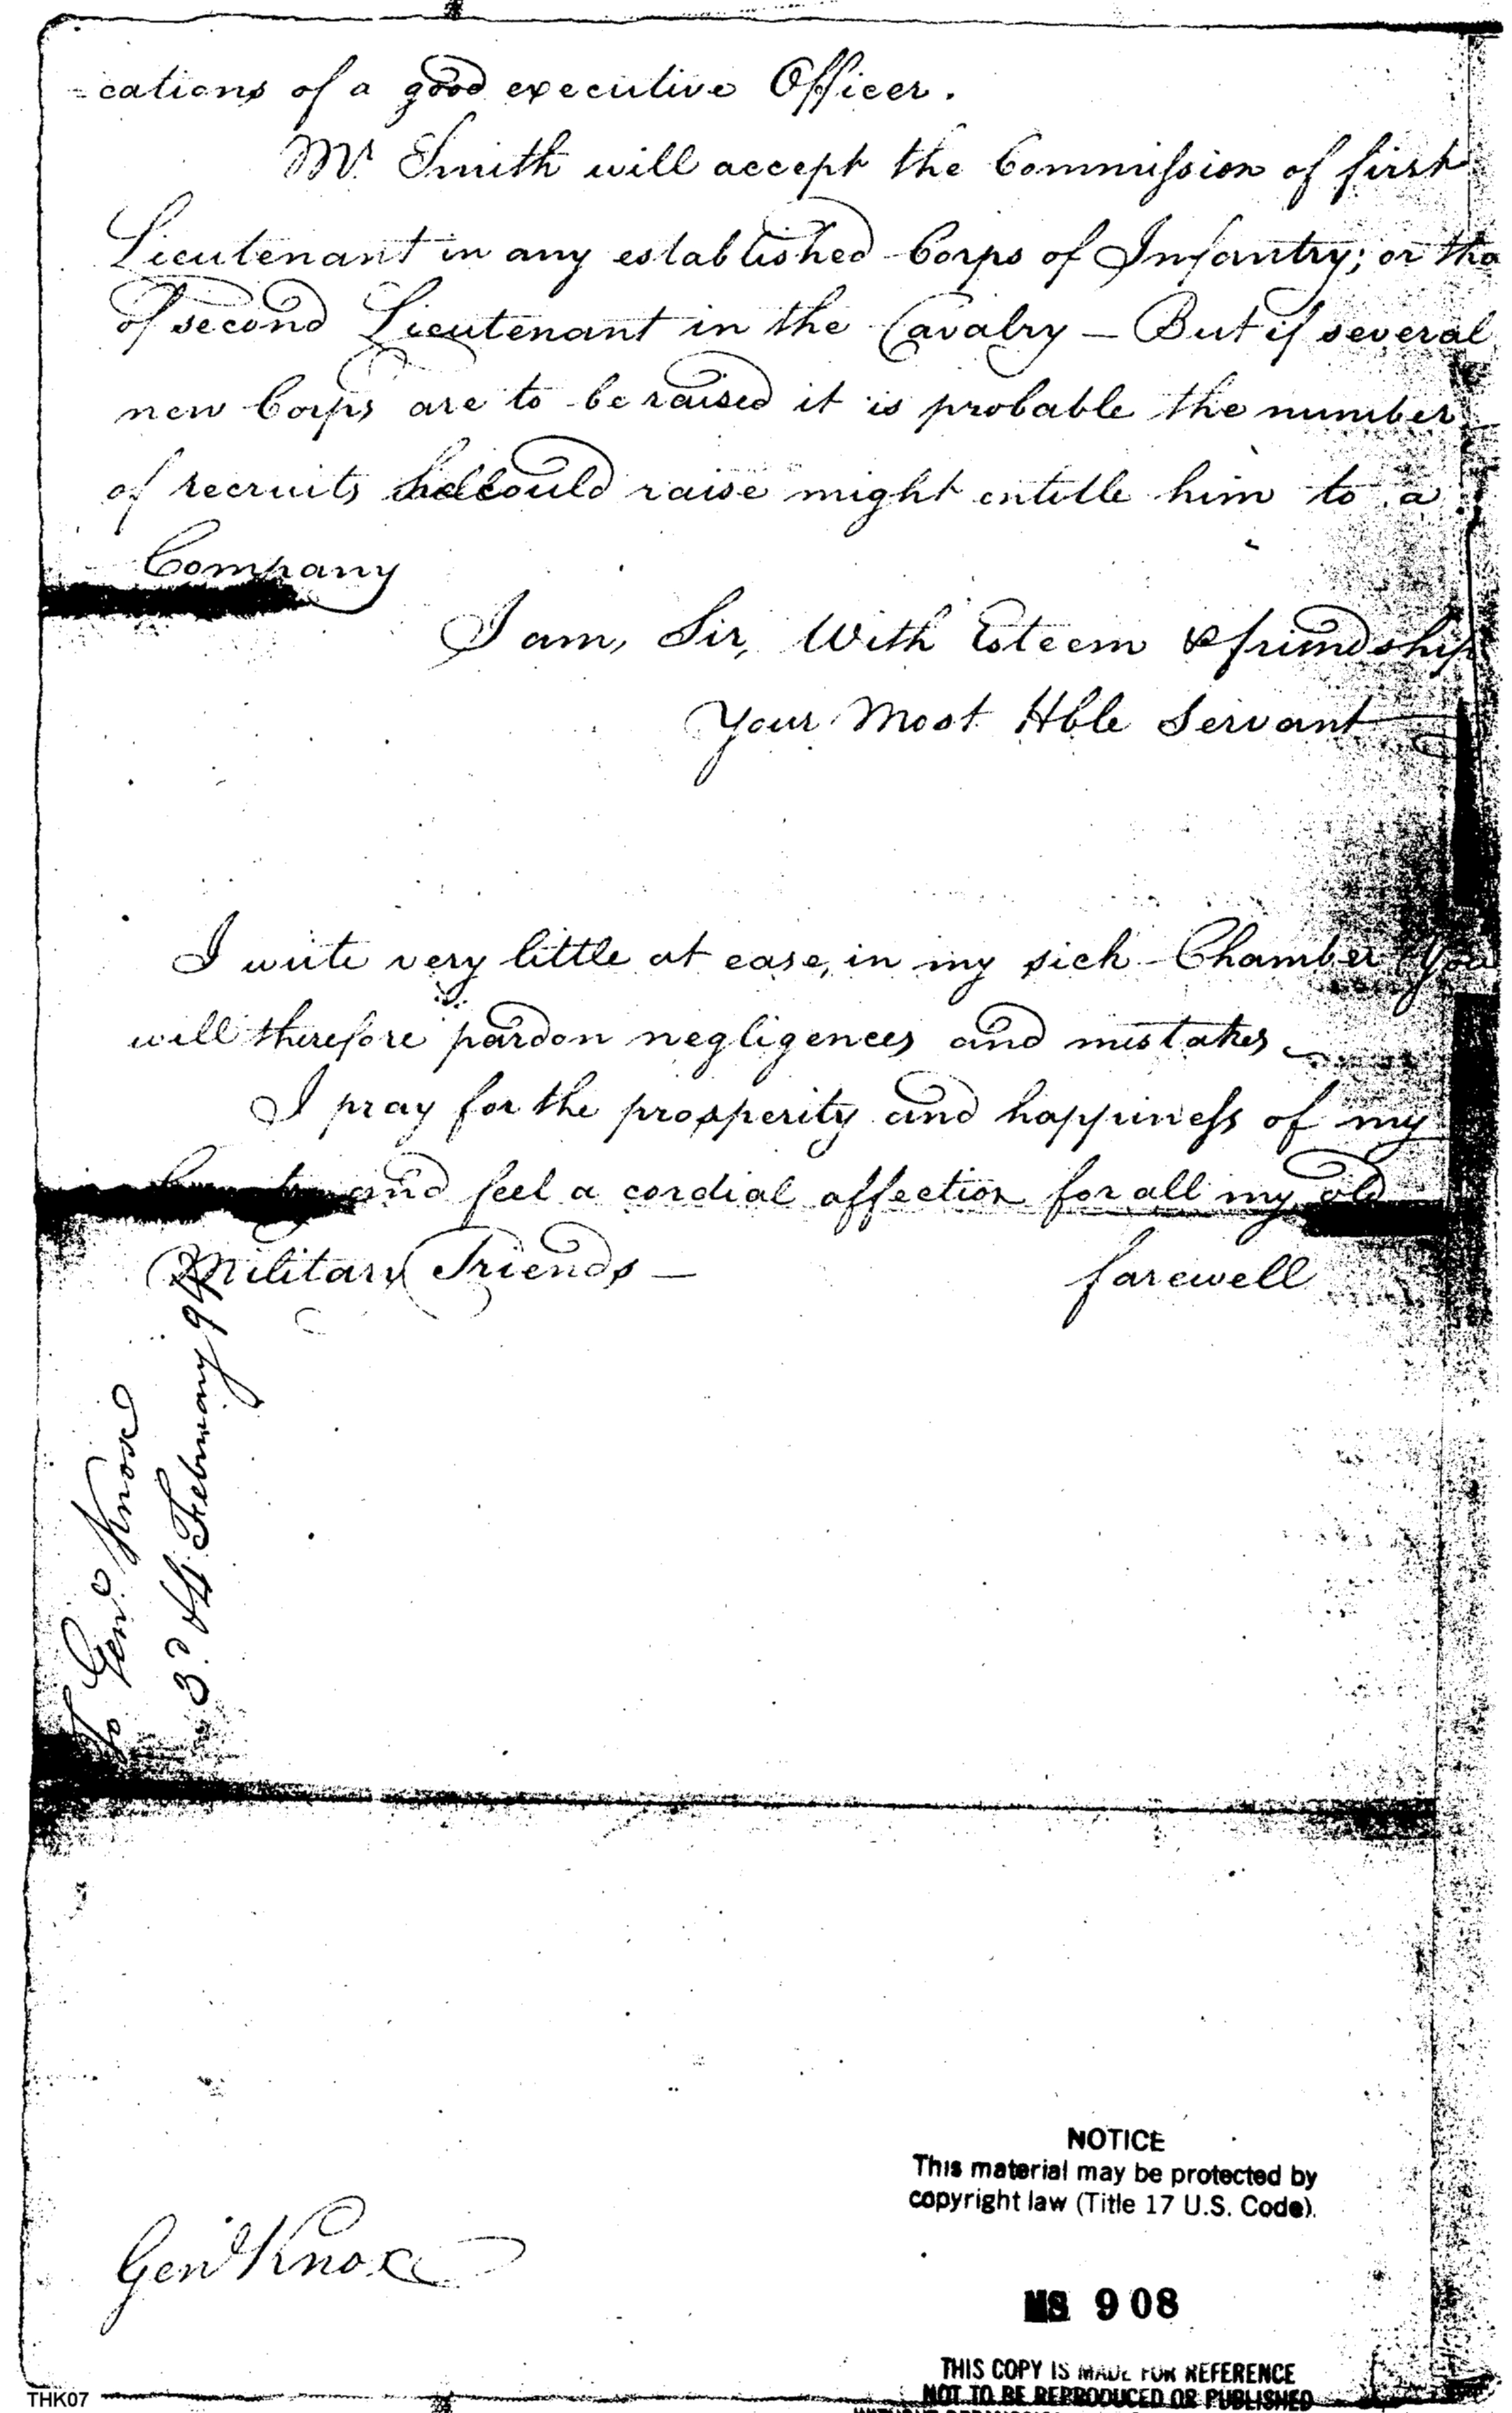 -cations of a good executive Officer.
Mr. Smith will accept the Commission of first
Lieutenant in any established Corps of Infantry; or tha
of second Lieutenant in the Cavalry — But if several
new Corps are to be raised it is probable the number
of recruits he could raise might entitle him to a
Company
I am, Sir, With Esteem & friendship
Your Most Hble Servant
I write very little at ease, in my sick Chamber You
will therefore pardon negligences and mistakes
I pray for the prosperity and happiness of my
Country and feel a cordial affection for all my old
Military Friends —
farewell
To Genl. Knox
3d. of February 94
Genl Knox
NOTICE
This material may be protected by
copyright law (Title 17 U.S. Code).
MS 908
THIS COPY IS MADE FOR REFERENCE
NOT TO BE REPRODUCED OR PUBLISHED
THK07